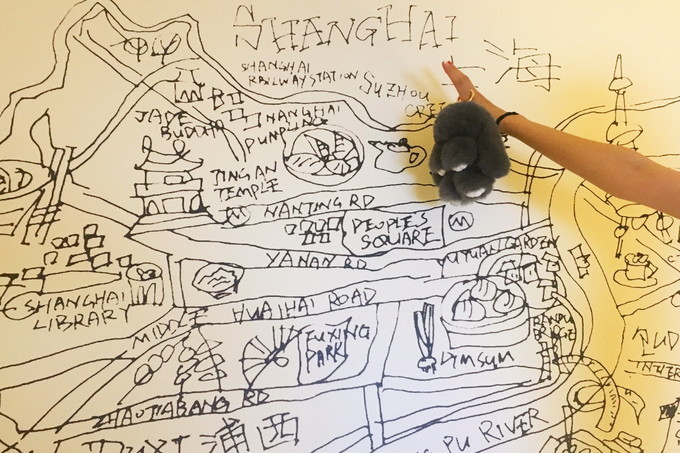 SHANGHAI
上海
SHANGHAI
RAILWAY STATION
SUZHOU
CREE
JADE
BUDDHA
SHANGHAI
DUMPLING
JINGAN
TEMPLE
NANJING RD
PEOPLE'S
SQUARE
YANAN RD
YUYUAN GARDEN
SHANGHAI
LIBRARY
MIDDLE HUAIHAI ROAD
FUXING
PARK
DIMSUM
BRIDGE
ZHAOJIABANG RD
PUXI 浦西
PU RIVER